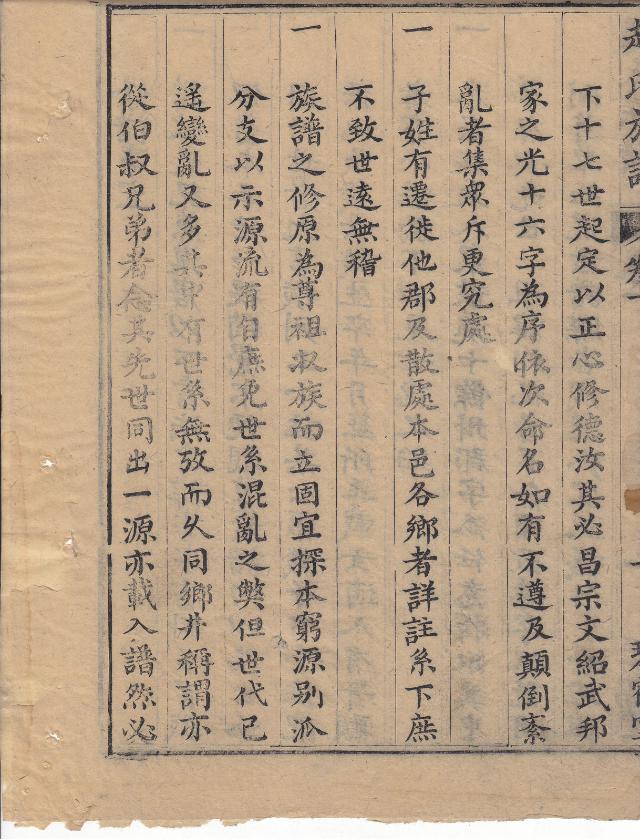 趙氏族譜
卷一
下十七世起定以正心修德汝其必昌宗文紹武邦
家之光十六字為序依次命名如有不遵及顛倒紊
亂者集衆斥更究處
一
子姓有遷徙他郡及散處本邑各鄉者詳註系下庶
不致世遠無稽
一
族譜之修原為尊祖收族而立固宜探本窮源別派
分支以示源流有自庶免世系混亂之弊但世代已
遙變亂又多其中有世系無攷而久同鄉井稱謂亦
從伯叔兄弟者念其先世同出一源亦載入譜然必